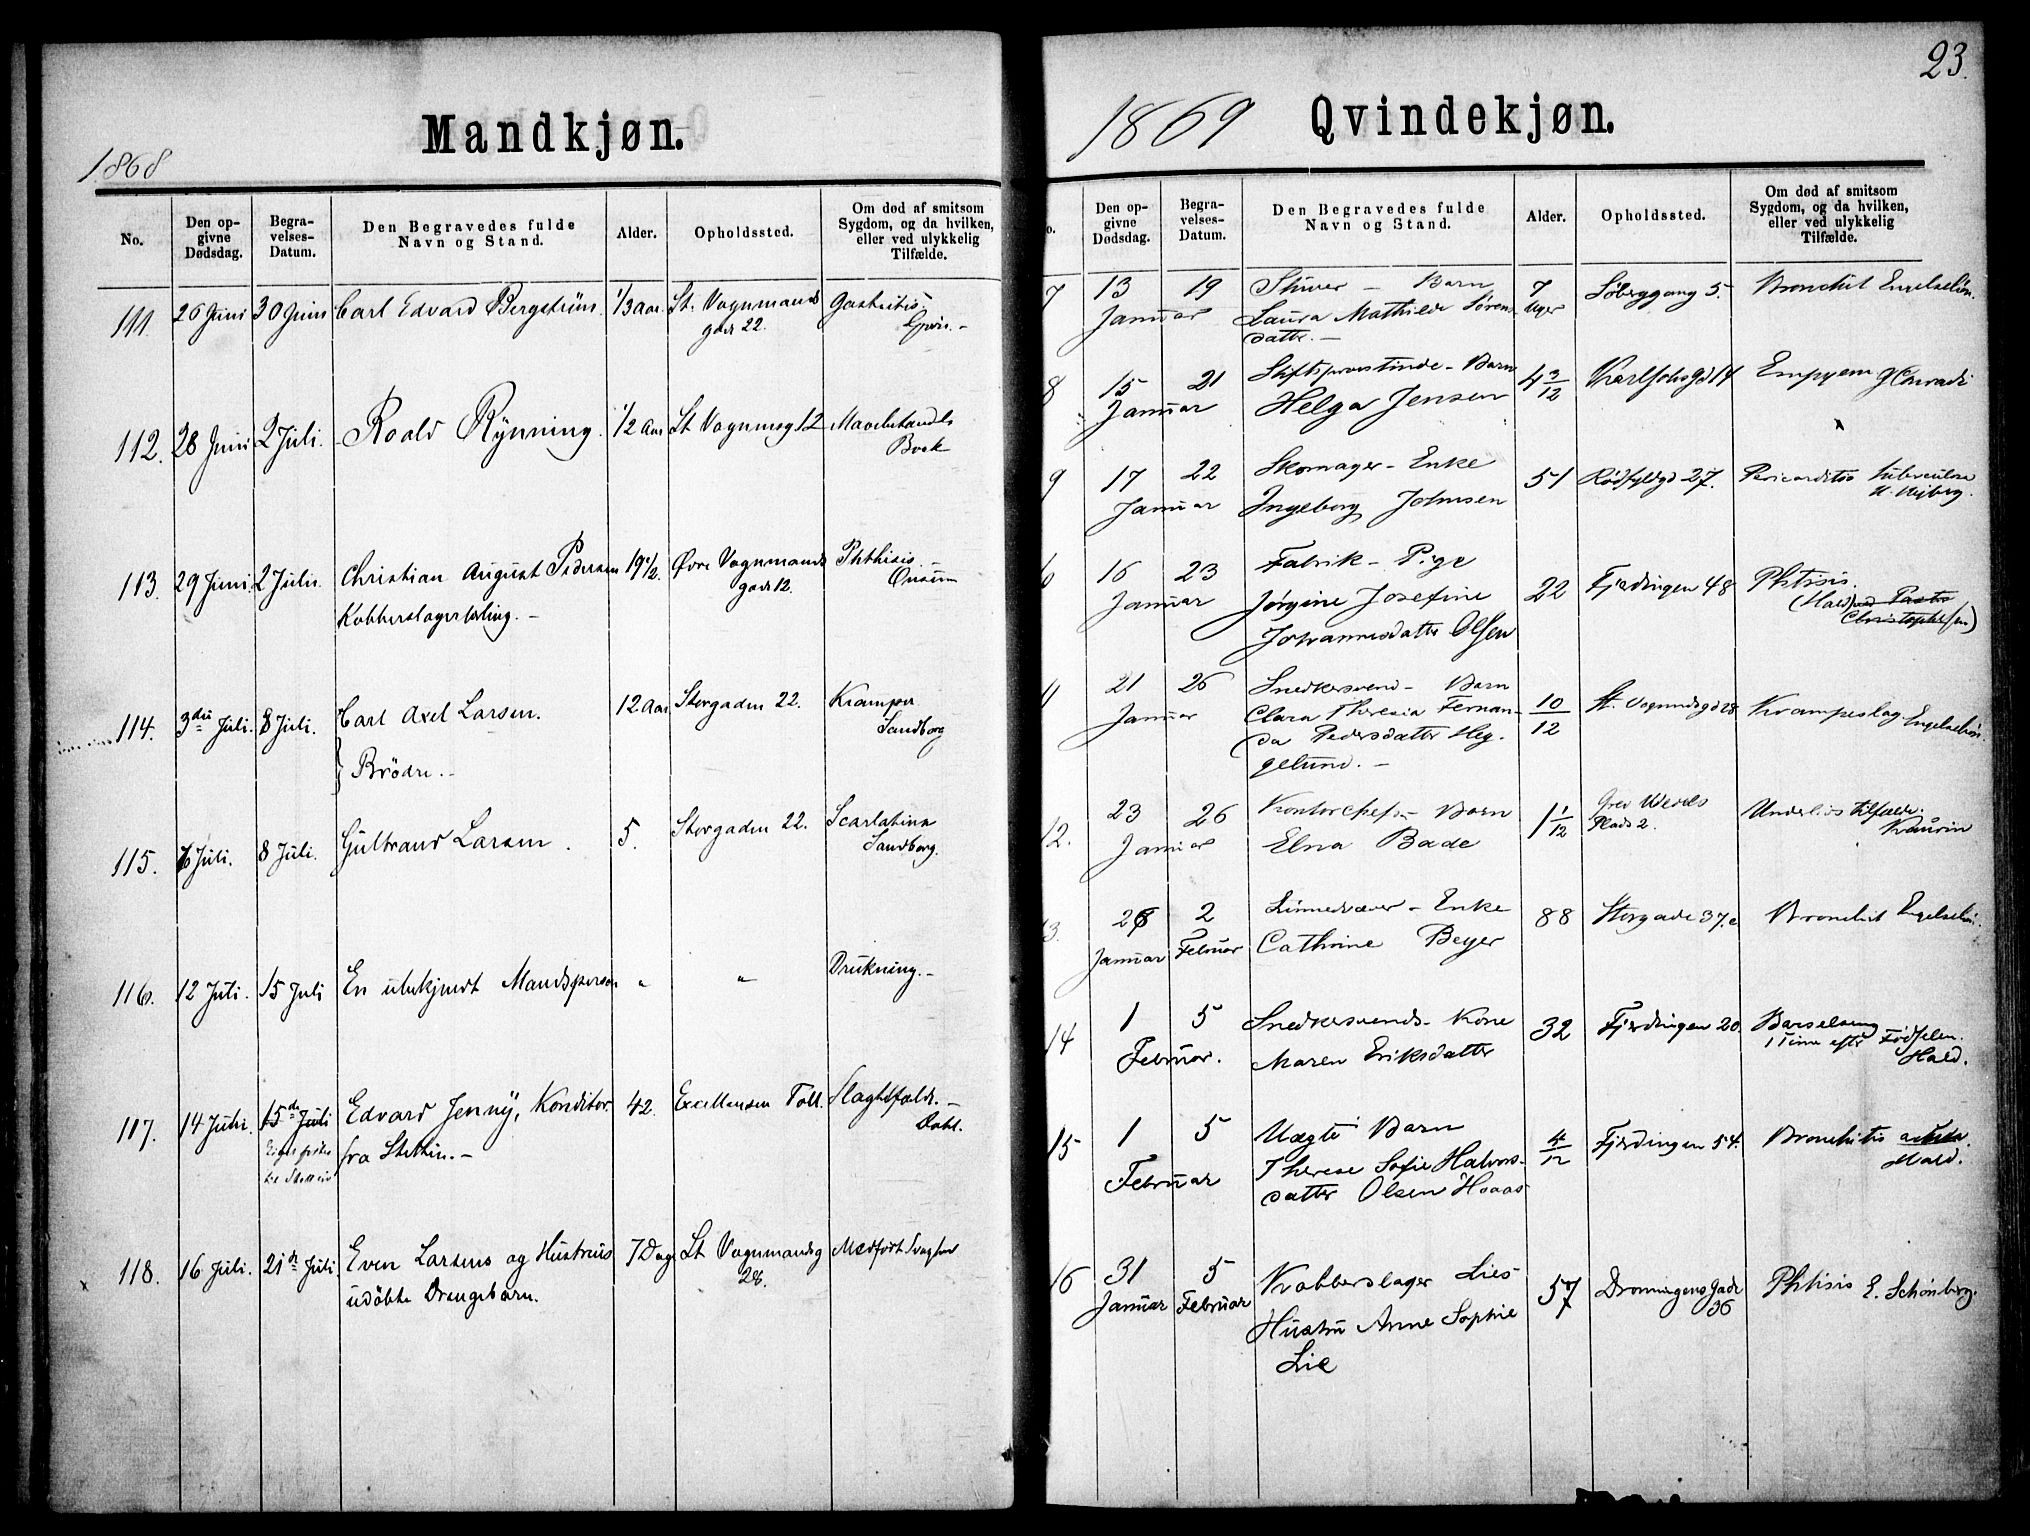 Mandkjøn.
1868
No.
Den op-
givne
Dødsdag.
Begra-
velses-
Datum.
Den Begravedes fulde
Navn og Stand.
Alder.
Opholdssted.
Om død af smitsom
Sygdom, og da hvilken,
eller ved ulykkelig
Tilfælde.
111. 26 Juni 30 Juni Carl Edvard Bergstrüm 1/3 Aar. St. Vognmands Gastritis.
gade 22.
112. 28 Juni 2 Juli. Roald Rynning. 1/2 Aar St Vognmsg 12
Boek
113. 29 Juni. 2 Juli. Christian August Pedersen 19 1/2. Øvre Vognmands Phthisis.
gade 12.
Kobberslagerlærling. –
114. 3die Juli. 8 Juli. Carl Axel Larsen. 12 Aar Storgaden 22. Kramper
Sandborg
Brödre. –
115. 6 Juli. 8 Juli. Gulbrand Larsen. 5. Storgaden 22. Scarlatina
Sandborg.
116. 12 Juli. 15 Juli En ubekjendt Mandsperson " " Drukning. –
117. 14 Juli. 15de Juli Edvard Jenny, Konditor 42. Slagtilfælde. –
Dahl.
fra Stettin. –
118. 16 Juli. 21de Juli. Even Larsens og Hustrues 7 Dag St Vognmandsg Medfödt Svaghed
28.
udöbte Drengebarn.
23.
1869 Qvindekjøn.
o.
Den op-
givne
Dødsdag.
Begra-
velses-
Datum.
Den Begravedes fulde
Navn og Stand.
Alder.
Opholdssted.
Om død af smitsom
Sygdom, og da hvilken,
eller ved ulykkelig
Tilfælde.
7 13 19 Sturer – Barn 7 Søberggang 5. Bronchit Engelschøn.
Januar Laura Mathilde Sørens Uger
datter. –
8 15 21 Stiftsprovstinde – Barn 4 3/12 Karl Johs Gd 14 Empyem J Conradi
Januar Helga Jensen
9 17 22 Skomager – Enke 51 Rødfyldgd 27. Pericarditis tuberculosa
Januar Ingeborg Johnsen
0 16 23 Fabrik – Pige 22 Fjerdingen 48 Phtisis.
Januar Jørgine Josefine
(Hald
Christophersen)
Johannesdatter Olsen
11 21 26 Snedkersvend – Barn 10/12 St. Vognmdsgd 28. Krampeslag. Engelschøn.
Januar Clara Theresia Fernan-
da Pedersdatter Heg-
gelund. –
12. 23 26 Kontorchefs – Barn 1 1/12 Grev Wedels
Plads 2.
Januar Elna Bade
3. 26 2 Linnedvæver – Enke 88 Storgade 37.c Bronchit Engelschøn.
Januar Februar Cathrine Beyer
14 1 5 Snedkersvends – Kone 32 Fjerdingen 20. Barselseng
1 Time efter Födselen.
Hald.
Februar. Maren Eriksdatter
15 1 5 Uægte Barn 4/12 Fjerdingen 54. Bronchitis acuta.
Hald.
Februar Therese Sofie Halvors-
datter Olsen Haaas
16 31 5 Kobberslager Lies 57 Dronningens Gade Phtisis E. Schönberg.
36
Januar Februar Hustru Anne Sophie
Lie